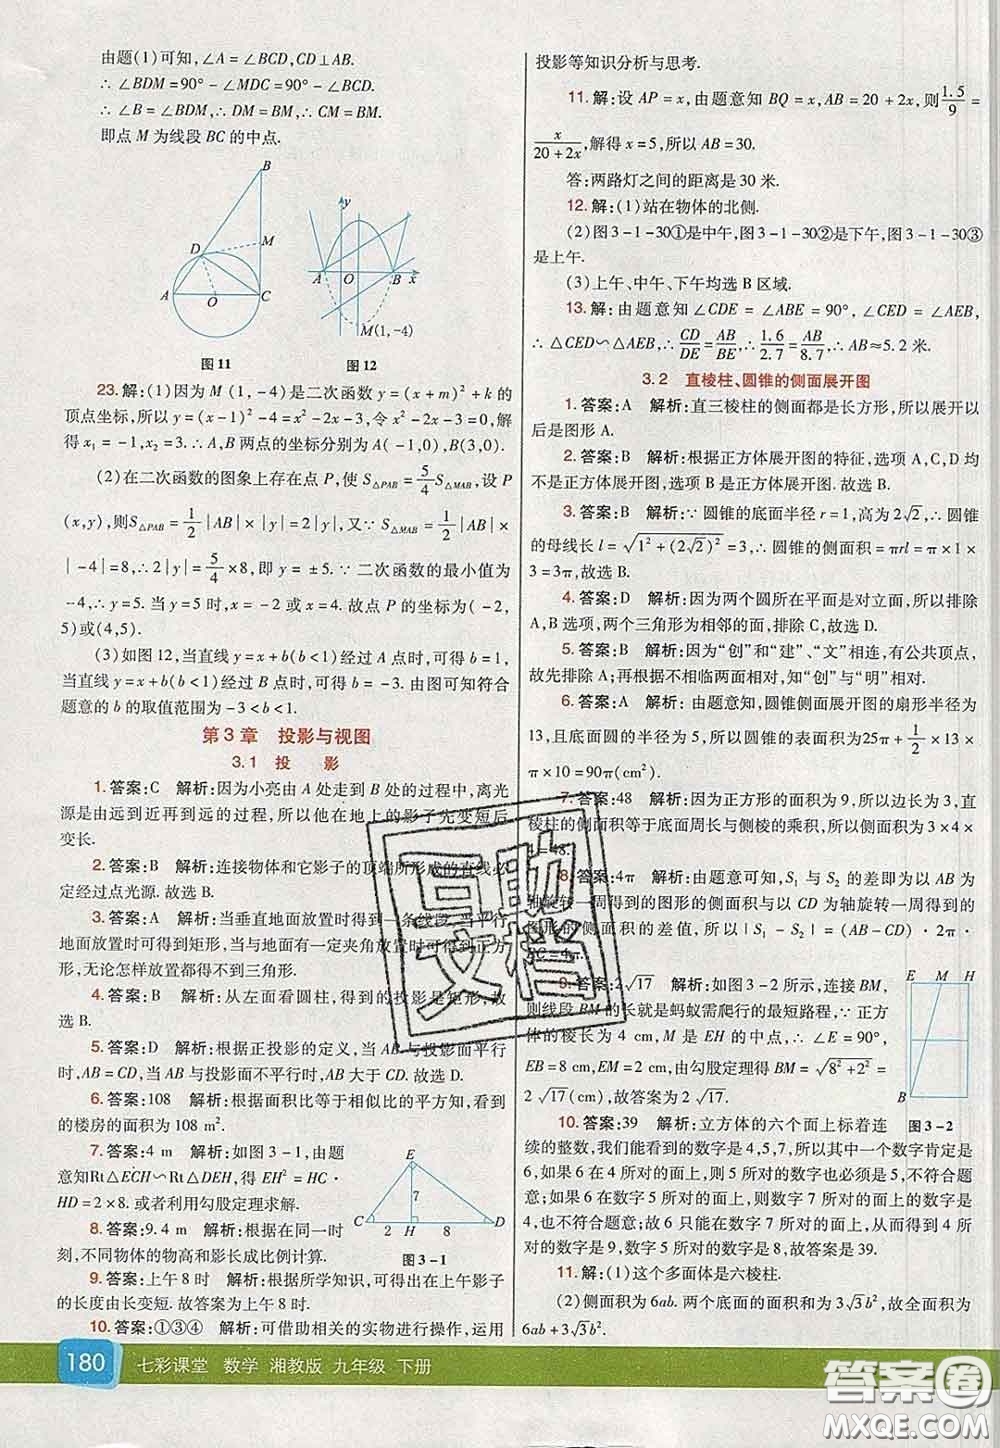 由题(1)可知,∠A=∠BCD,CD⊥AB.
∴ ∠BDM=90°-∠MDC=90°-∠BCD.
∴ ∠B=∠BDM.∴ DM=BM,∴ CM=BM.
即点 M 为线段 BC 的中点.
B
D
M
A
O
C
图 11
y
A
O
B
x
M(1,-4)
图 12
23.解:(1)因为 M (1,-4)是二次函数 y=(x+m)²+k 的
顶点坐标,所以 y=(x-1)²-4=x²-2x-3,令 x²-2x-3=0,解
得 x₁=-1,x₂=3.∴ A,B 两点的坐标分别为 A(-1,0),B(3,0).
(2)在二次函数的图象上存在点 P,使 S△PAB=5/4 S△MAB,设 P
(x,y),则S△PAB=1/2|AB|×|y|=2|y|,又∵ S△MAB=1/2|AB|×
|-4|=8,∴2|y|=5/4×8,即 y=±5.∵ 二次函数的最小值为
-4,∴y=5. 当 y=5 时,x=-2 或 x=4. 故点 P 的坐标为(-2,
5)或(4,5).
(3)如图 12,当直线 y=x+b(b<1)经过 A 点时,可得 b=1,
当直线 y=x+b(b<1)经过 B 点时,可得 b=-3. 由图可知符合
题意的 b 的取值范围为-3<b<1.
第 3 章 投影与视图
3.1 投 影
1.答案:C 解析:因为小亮由 A 处走到 B 处的过程中,离光
源是由远到近再到远的过程,所以他在地上的影子先变短后
变长.
2.答案:B 解析:连接物体和它影子的顶端所形成的直线必
定经过点光源.故选 B.
3.答案:A 解析:当垂直地面放置时得到一条线段,当平行
地面放置时可得到矩形,当与地面有一定夹角放置时可得到正方
形,无论怎样放置都得不到三角形.
4.答案:B 解析:从左面看圆柱,得到的投影是矩形,故
选 B.
5.答案:D 解析:根据正投影的定义,当 AB 与投影面平行
时,AB=CD,当 AB 与投影面不平行时,AB 大于 CD.故选 D.
6.答案:108 解析:根据面积比等于相似比的平方知,看到
的楼房的面积为 108 m².
7.答案:4 m 解析:如图 3-1,由题
意知Rt△ECH∽Rt△DEH,得 EH²=HC·
HD=2×8.或者利用勾股定理求解.
E
7
C
2
H
8
D
图 3-1
8.答案:9.4 m 解析:根据在同一时
刻,不同物体的物高和影长成比例计算.
9.答案:上午 8 时 解析:根据所学知识,可得出在上午影子
的长度由长变短.故答案为上午 8 时.
10.答案:①③④ 解析:可借助相关的实物进行操作,运用
投影等知识分析与思考.
11.解:设 AP=x,由题意知 BQ=x,AB=20+2x,则1.5/9=
x/(20+2x),解得 x=5,所以 AB=30.
答:两路灯之间的距离是 30 米.
12.解:(1)站在物体的北侧.
(2)图 3-1-30①是中午,图 3-1-30②是下午,图 3-1-30③
是上午.
(3)上午、中午、下午均选 B 区域.
13.解:由题意知 ∠CDE=∠ABE=90°,∠CED=∠AEB,
∴△CED∽△AEB,∴CD/DE=AB/BE,∴1.6/2.7=AB/8.7,∴AB≈5.2 米.
3.2 直棱柱、圆锥的侧面展开图
1.答案:A 解析:直三棱柱的侧面都是长方形,所以展开以
后是图形 A.
2.答案:B 解析:根据正方体展开图的特征,选项 A,C,D
均不是正方体展开图,选项 B 是正方体展开图.故选 B.
3.答案:B 解析:∵ 圆锥的底面半径 r=1,高为 2√2,∴ 圆锥
的母线长 l=√(1²+(2√2)²)=3,∴ 圆锥的侧面积=πrl=π×1×
3=3π,故选 B.
4.答案:D 解析:因为两个圆所在平面是对立面,所以排除
A,B 选项,两个三角形为相邻的面,排除 C,故选 D.
5.答案:B 解析:因为“创”和“建”、“文”相连,有公共顶点,
故先排除 A;再根据不相临两面中,知“创”与“明”相对.
6.答案:A 解析:由题意知,圆锥侧面展开图的扇形半径为
13,且去底面圆的半径为 5,所以圆锥的表面积为25π+1/2×13×
π×10=90π(cm²).
7.答案:48 解析:因为正方形的面积为 9,所以边长为 3,直
棱柱的侧面积等于底面周长与侧棱的乘积,所以面积为 3×4×
4=48.
8.答案:4π 解析:由题意可知,S₁ 与 S₂ 的差即为以 AB 为
轴旋转一周得到的图形的侧面积与以 CD 为轴旋转一周得到的
图形的侧面积的差值,所以|S₁-S₂|=(AB-CD)·2π·
BC=4π.
9.答案:2√17 解析:如图 3-2 所示,连接 BM,
则线段 BM 的长就是蚂蚁需爬行的最短路程,∵ 正方
体的棱长为 4 cm,M 是 EH 的中点,∴∠E=90°,
EB=8 cm,EM=2 cm,由勾股定理得 BM=√(8²+2²)=
2√17(cm),故答案为 2√17.
E
M
H
B
图 3-2
10.答案:39 解析:立方体的六个面上标着连
续的整数,我们能看到的数字是 4,5,7,所以其中一个数字肯定是
6,如果 6 在 4 所对的面上,则 5 所对的数字也必须是 5,不符合题
意;如果 6 在数字 5 所对的面上,则数字 7 所对的面上的数字是
4,也不符合题意;故 6 只能在 7 所对的面上,从而得到 4 所对
的面上的数字是 9,数字 5 所对的数字是 8,故答案是 39.
11.解:(1)这个多面体是六棱柱.
(2)侧面积为 6ab. 两个底面的面积和为 3√3b²,故全面积为
6ab+3√3b².
互助
文档
180 七彩课堂 数学 湘教版 九年级 下册
答案圈
MXQE.COM